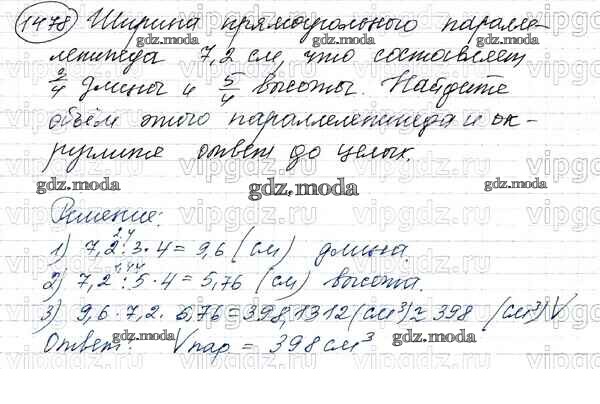 1478 Ширина прямоугольного паралле-
лепипеда 7,2 см, что составляет
3/4 длины и 5/4 высоты. Найдите
объём этого параллелепипеда и ок-
руглите ответ до целых.
Решение:
2,4
1) 7,2 : 3 · 4 = 9,6 (см) длина.
1,44
2) 7,2 : 5 · 4 = 5,76 (см) высота.
3) 9,6 · 7,2 · 5,76 = 398,1312 (см³) ≈ 398 (см³) V
Ответ: Vпар = 398 см³
gdz.moda
vipgdz.moda